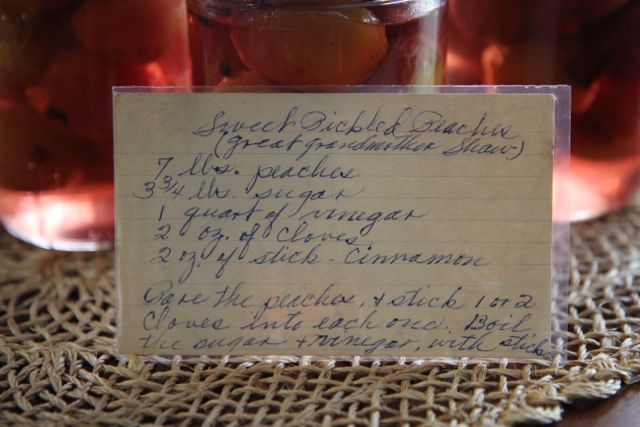 Sweet Pickled Peaches
(Great grandmother Shaw)
7 lbs. peaches
3 3/4 lbs. sugar
1 quart of vinegar
2 oz. of cloves
2 oz. of stick - cinnamon
Pare the peaches, & stick 1 or 2
cloves into each one. Boil
the sugar + vinegar, with stick